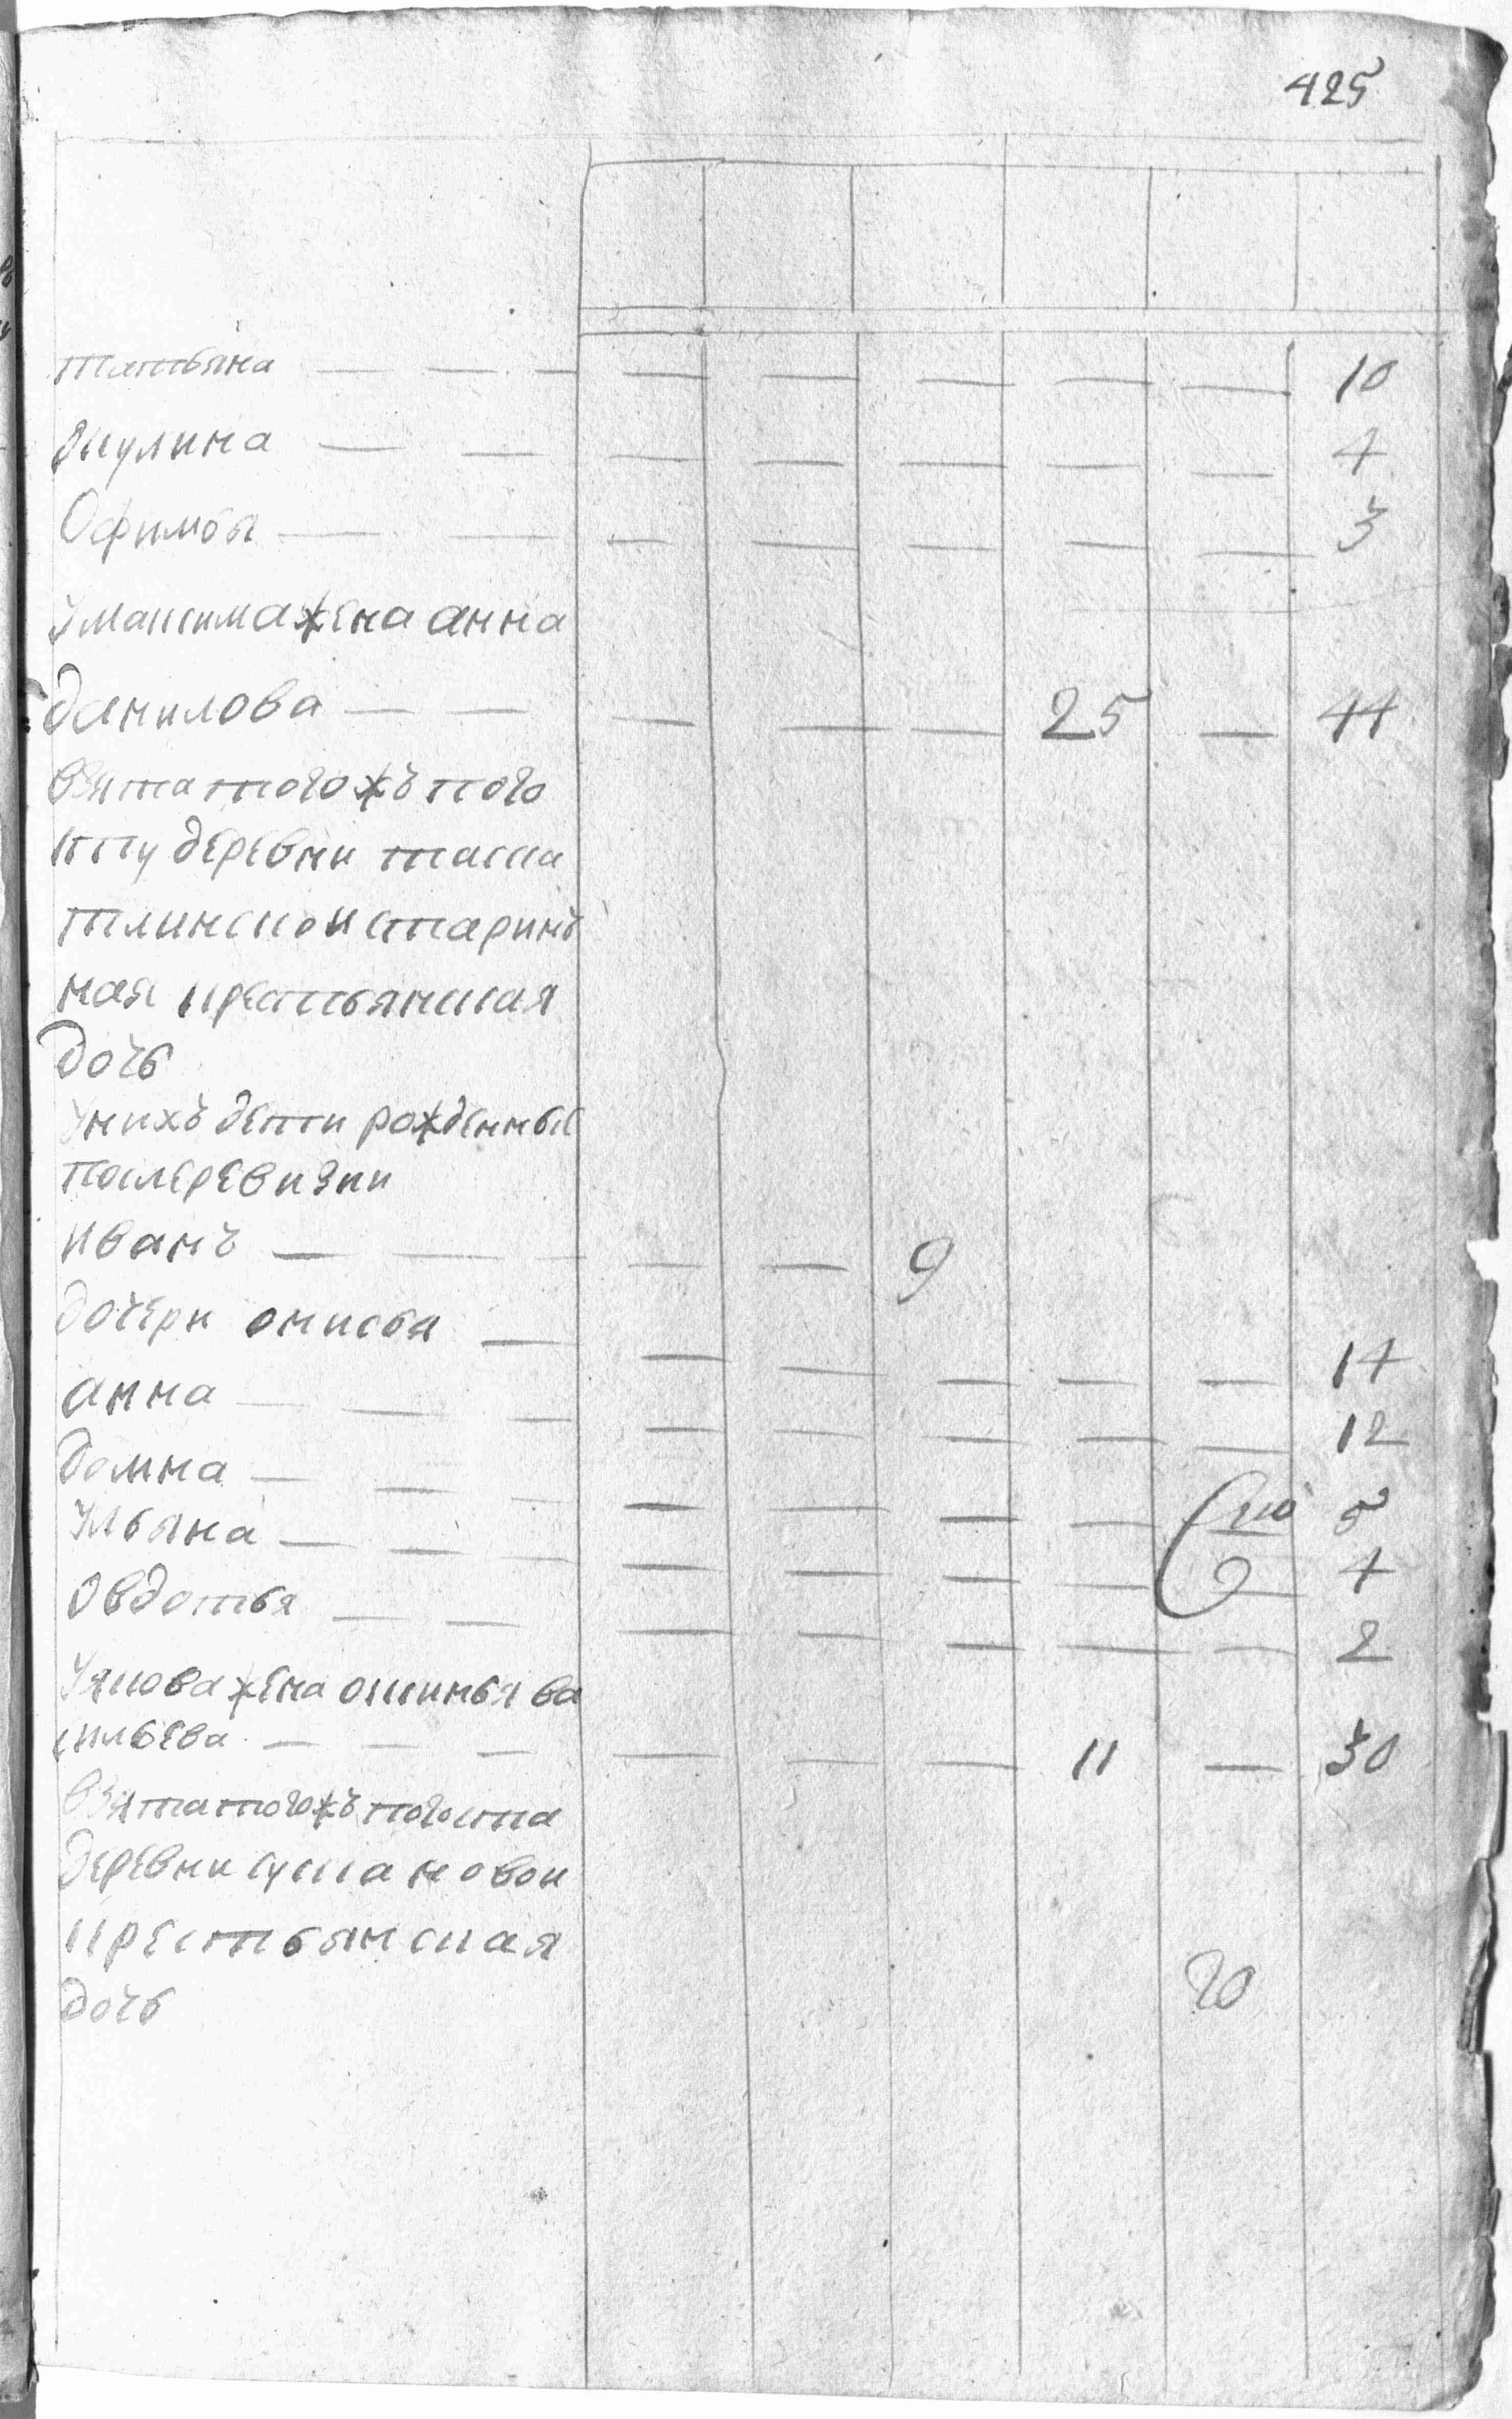 425
татьяна — — — — — — — — 10
Акулина — — — — — — — 4
Офимья — — — — — — — 3
У максима жена анна
данилова — — — — — 25 — 44
взята того жъ пого
сту деревни
тлинской старин
ная крестьянская
дочь
У нихъ дети рожденные
после ревизии
иванъ — — — — 9
дочери онисья — — — — — — 14
анна — — — — — — — — 12
домна — — — — — — — 5
Ульяна — — — — — — — — 4
Овдотья — — — — — — — 2
У якова жена ва
сильева — — — — — — 11 — 30
взята того жъ погоста
деревни сукановой
крестьянская
дочь
20